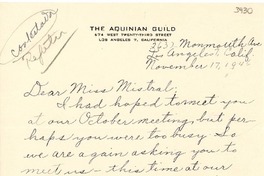 3930
contestada
Register
THE AQUINIAN GUILD
474 WEST TWENTY-THIRD STREET
LOS ANGELES 7, CALIFORNIA
3437 Monmouth Ave
Los Angeles, Calif
November 17, 194
Dear Miss Mistral:
I had hoped to meet you
at our October meeting, but per-
haps you were too busy. So
we are again asking you to
meet us - this time at our